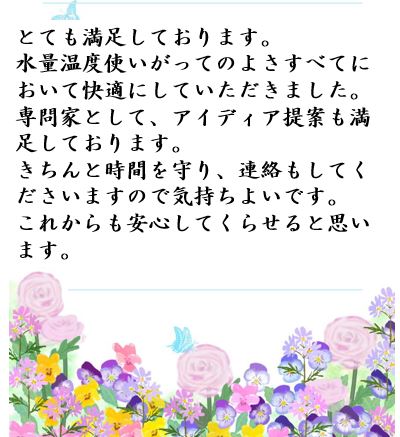 とても満足しております。
水量温度使いがってのよさすべてに
おいて快適にしていただきました。
専問家として、アイディア提案も満
足しております。
きちんと時間を守り、連絡もしてく
ださいますので気持ちよいです。
これからも安心してくらせると思い
ます。